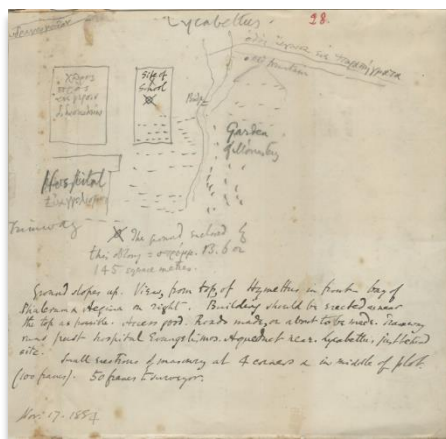 Lycabettus.
18.
old fountain
Site of
School
Bridge
Garden
of Monastery
Hospital
Tramway
The ground enclosed by
this oblong = στρέμμ. 13.6 or
145 square metres.
Ground slopes up. View, from top, of Hymettus in front & bay of
Phalerum & Aegina on right. Building should be erected as near
the top as possible. Access good. Roads made, or about to be made. Tramway
runs past hospital Evangelismos. Aqueduct near. Lycabettus just behind
site.
Small erections of masonry at 4 corners & in middle of plot
(100 francs). 50 francs to surveyor.
Nov. 17. 1884